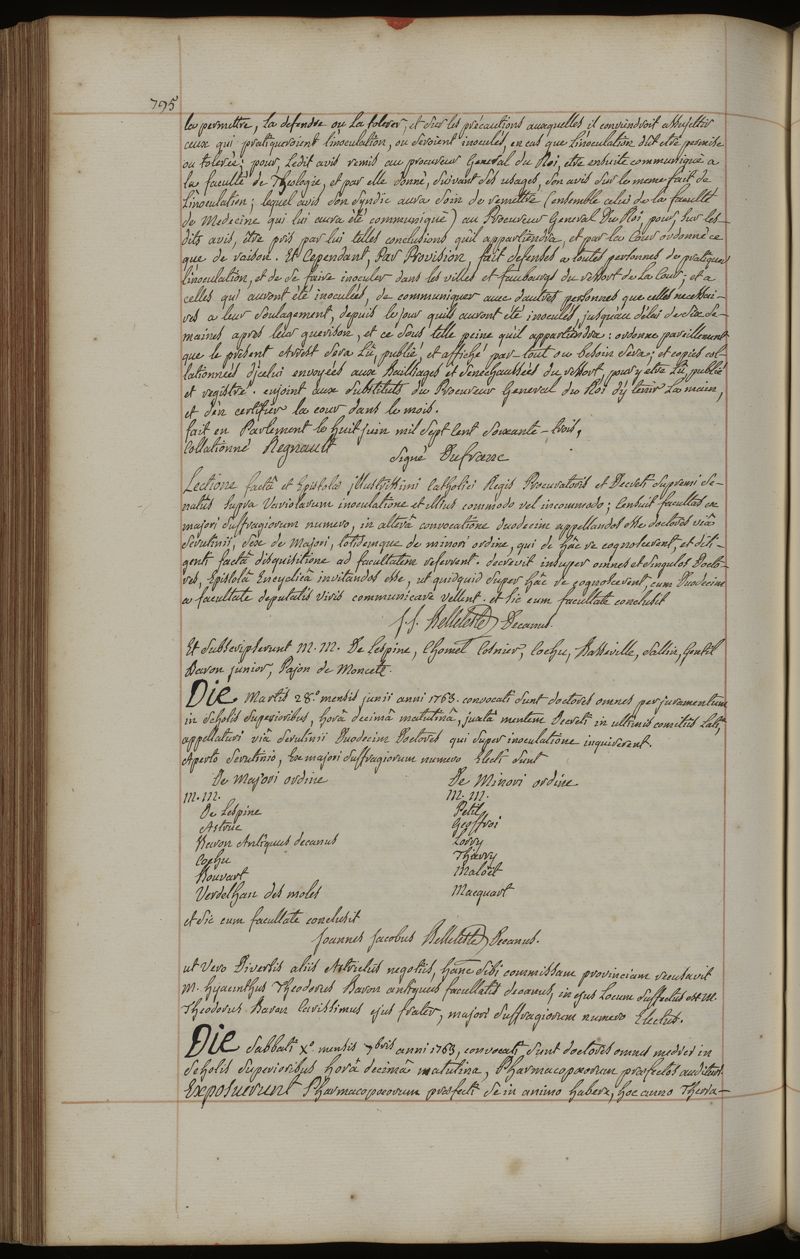 795
la permettre, la defendre ou la tolerer, et sur les précautions auxquelles il conviendroit assujettir
ceux qui pratiqueroient l'inoculation, ou seroient inoculés, en cas que l'inoculation dût etre permise
ou tolerée; pour, ledit avis remis au procureur General du Roi, etre ensuite communiqué a
la faculté de Theologie, et par elle donné, suivant ses usages, son avis sur le meme fait de
l'inoculation; lequel avis son syndic aura soin de remettre (ensemble celui de la faculté
de Medecine qui lui aura été communiqué) au Procureur General du Roi, pour, sur les-
dits avis, être pris par lui telles conclusions qu'il appartiendra, et par la Cour ordonné ce
que de raison. Et Cependant, Par Provision, fait defenses a toutes personnes de pratiquer
l'inoculation, et de se faire inoculer dans les villes et fauxbourgs du ressort de la Cour; et a
celles qui auront été inoculées, de communiquer avec d'autres personnes que celles necessai-
res a leur soulagement, depuis le jour qu'ils auront été inoculés, jusqu'au délai de six se-
maines apres leur guerison, et ce sous telle peine qu'il appartiendra: ordonne pareillement
que le present Arrest sera Lû, publié, et affiché par-tout ou besoin sera; et copies col-
lationnées d'icelui envoyées aux Bailliages et Senechaussées du ressort, pour y etre Lû, publié
et registré. enjoint aux Substituts du Procureur General du Roi d'y tenir La main,
et d'en certifier la cour dans le mois.
fait en Parlement le huit juin mil sept Cent Soixante-trois,
Collationné Regnault
Signé Dufranc
Lectione factâ et Epistolæ illustrissimi Catholici Regis Procuratoris et Decreti Supremi Se-
natûs supra Variolarum inoculatione et illius commodo vel incommodo; Censuit facultas ex
majori suffragiorum numero, in alterâ convocatione duodecim appellandos esse doctores viâ
Scrutinii, sex de Majori, totidemque de minori ordine, qui de hâc re cognoscerent, et dili-
genti factâ disquisitione ad facultatem referrent. decrevit insuper omnes et singulos Docto-
res, Epistolâ Encyclicâ invitandos esse, ut quidquid super hâc re cognoscerent, cum Duodecim
a facultate deputatis viris communicare vellent. et sic cum facultate conclusit
J. J. Belleteste Decanus.
Et subscripserunt M. M. De Lespine, Chomel Cosnier, Cochu, Basseville, Sallin, Gentil
Baron junior, Pajon de Moncets.
Die Martis 28° mensis junii anni 1763. convocati sunt doctores omnes per juramentum
in scholis superioribus, horâ decimâ matutinâ, juxta mentem Decreti in ultimis comitiis Lati,
appellaturi viâ Scrutinii Duodecim Doctores qui super inoculatione inquirerent.
Aperto Scrutinio, Ex majori suffragiorum numero Electi sunt
De Majori ordine De Minori ordine
M. M. M. M.
De Lespine Petit
Astruc Geoffroi
Baron Antiquus decanus Lorry
Cochu Thierry
Bouvart Maloët
Verdelhan des moles Macquart
et sic cum facultate conclusit
Joannes Jacobus Belleteste Decanus.
ut Vero Diversis aliis Astrictus negotiis, hanc sibi commissam provinciam recusavit
M. Hyacinthus Theodorus Baron antiquus facultatis decanus, in ejus Locum suffectus est M.
Theodorus Baron Carissimus ejus frater, majori suffragiorum numero Electus.
Die Sabbati X° mensis 7bris anni 1763, convocati sunt doctores omnes medici in
Scholis superioribus horâ decimâ matutina, Pharmacopæorum præfectos audituri.
Exposuerunt Pharmacopæorum præfecti se in animo habere, hoc anno Theria-